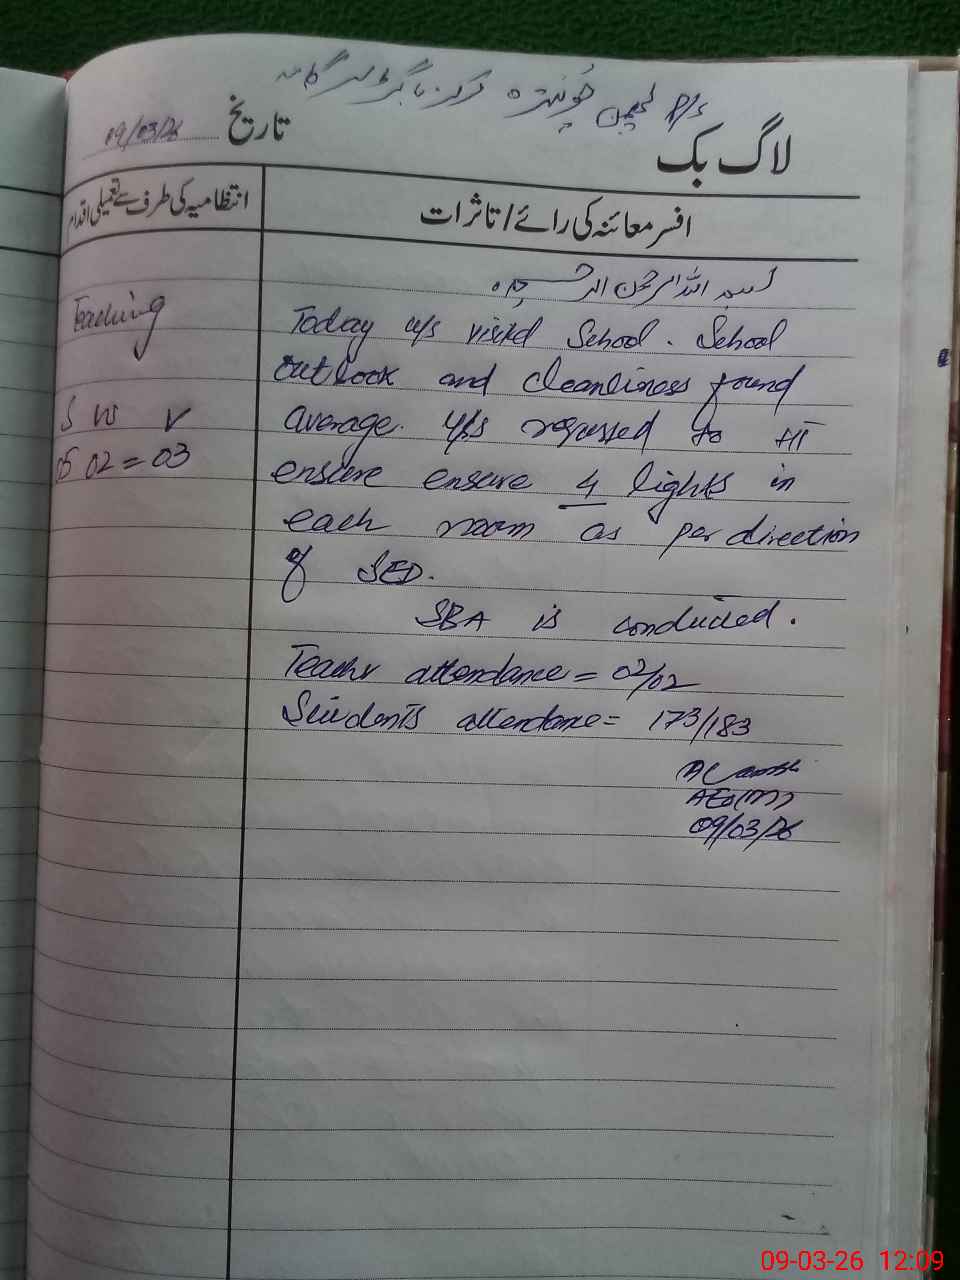 P/S
لاگ بک
تاریخ 09/03/26
افسر معائنہ کی رائے/تاثرات
انتظامیہ کی طرف سے تعمیلی اقدام
بسم اللہ الرحمن الرحیم
Today u/s visited School. School
outlook and cleanliness found
average. u/s to HT
ensure ensure 4 lights in
each room as per direction
of SED.
SBA is conducted.
Teacher attendance = 02/02
Students attendance = 173/183
AEO(M)
09/03/26
Teaching
S W V
05 02 = 03
09-03-26 12:09